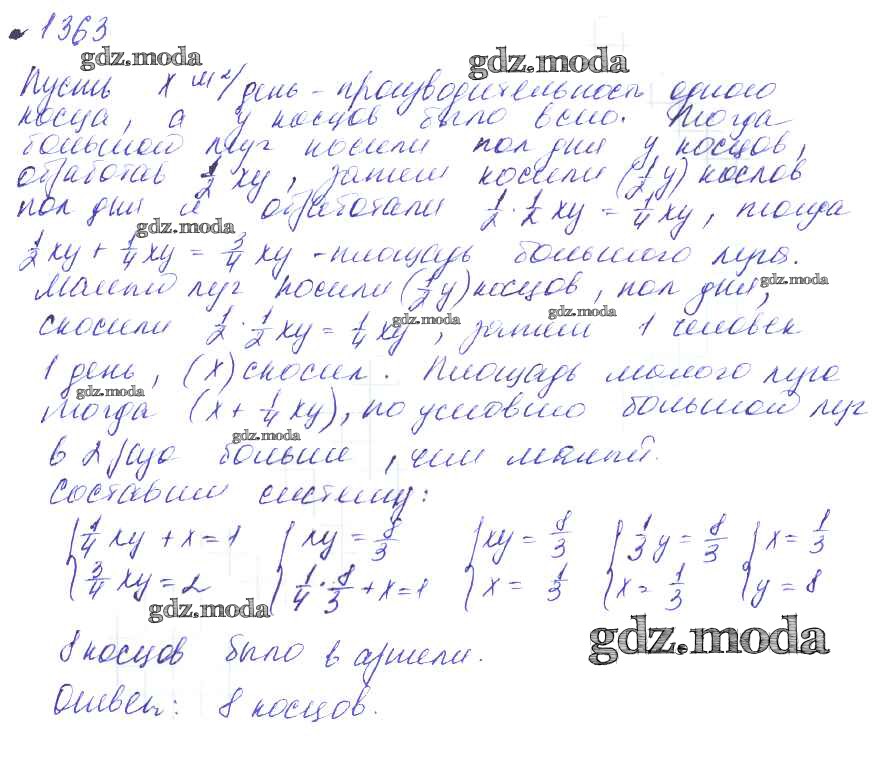 1363
gdz.moda gdz.moda
Пусть x м²/день - производительность одного
косца, а y косцов было всего. Тогда
большой луг косили пол дня y косцов,
обработав 1/2 xy, затем косили (1/2 y) косцов
пол дня и обработали 1/2 · 1/2 xy = 1/4 xy, тогда
gdz.moda
1/2 xy + 1/4 xy = 3/4 xy - площадь большого луга.
gdz.moda
Малый луг косили (1/2 y) косцов, пол дня,
gdz.moda gdz.moda
скосили 1/2 · 1/2 xy = 1/4 xy, затем 1 человек
1 день, (x) скосил. Площадь малого луга
gdz.moda
тогда (x + 1/4 xy), по условию большой луг
gdz.moda
в 2 раза больше, чем малый.
Составим систему:
{ 1/4 xy + x = 1 { xy = 8/3 { xy = 8/3 { 1/3 y = 8/3 { x = 1/3
3/4 xy = 2 1/4 · 8/3 + x = 1 x = 1/3 x = 1/3 y = 8
gdz.moda gdz.moda
8 косцов было в артели.
Ответ: 8 косцов.